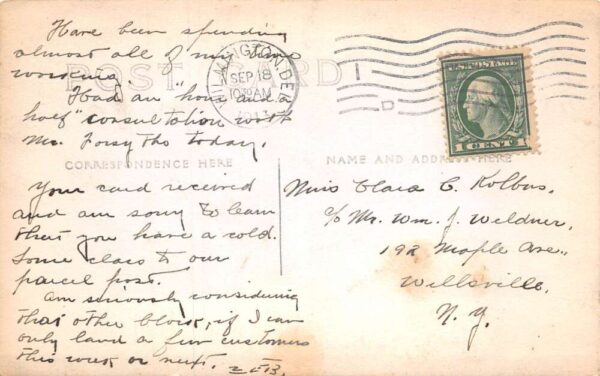 Have been spending
almost all of my time
working.
Had an "hour and
half" consultation with
Mr. Forsythe today.
POST CARD
CORRESPONDENCE HERE
Your card received
and am sorry to learn
that you have a cold.
Some class to our
parcel post.
Am seriously considering
that other block, if I can
only land a few customers
this week or next.
WILMINGTON, DEL
SEP 18
10 30 AM
D
U.S. POSTAGE
1 CENT 1
NAME AND ADDRESS HERE
Miss Clara C. Kolbus,
c/o Mr. Wm. J. Weldner,
192 Maple Ave.,
Wellsville,
N. Y.